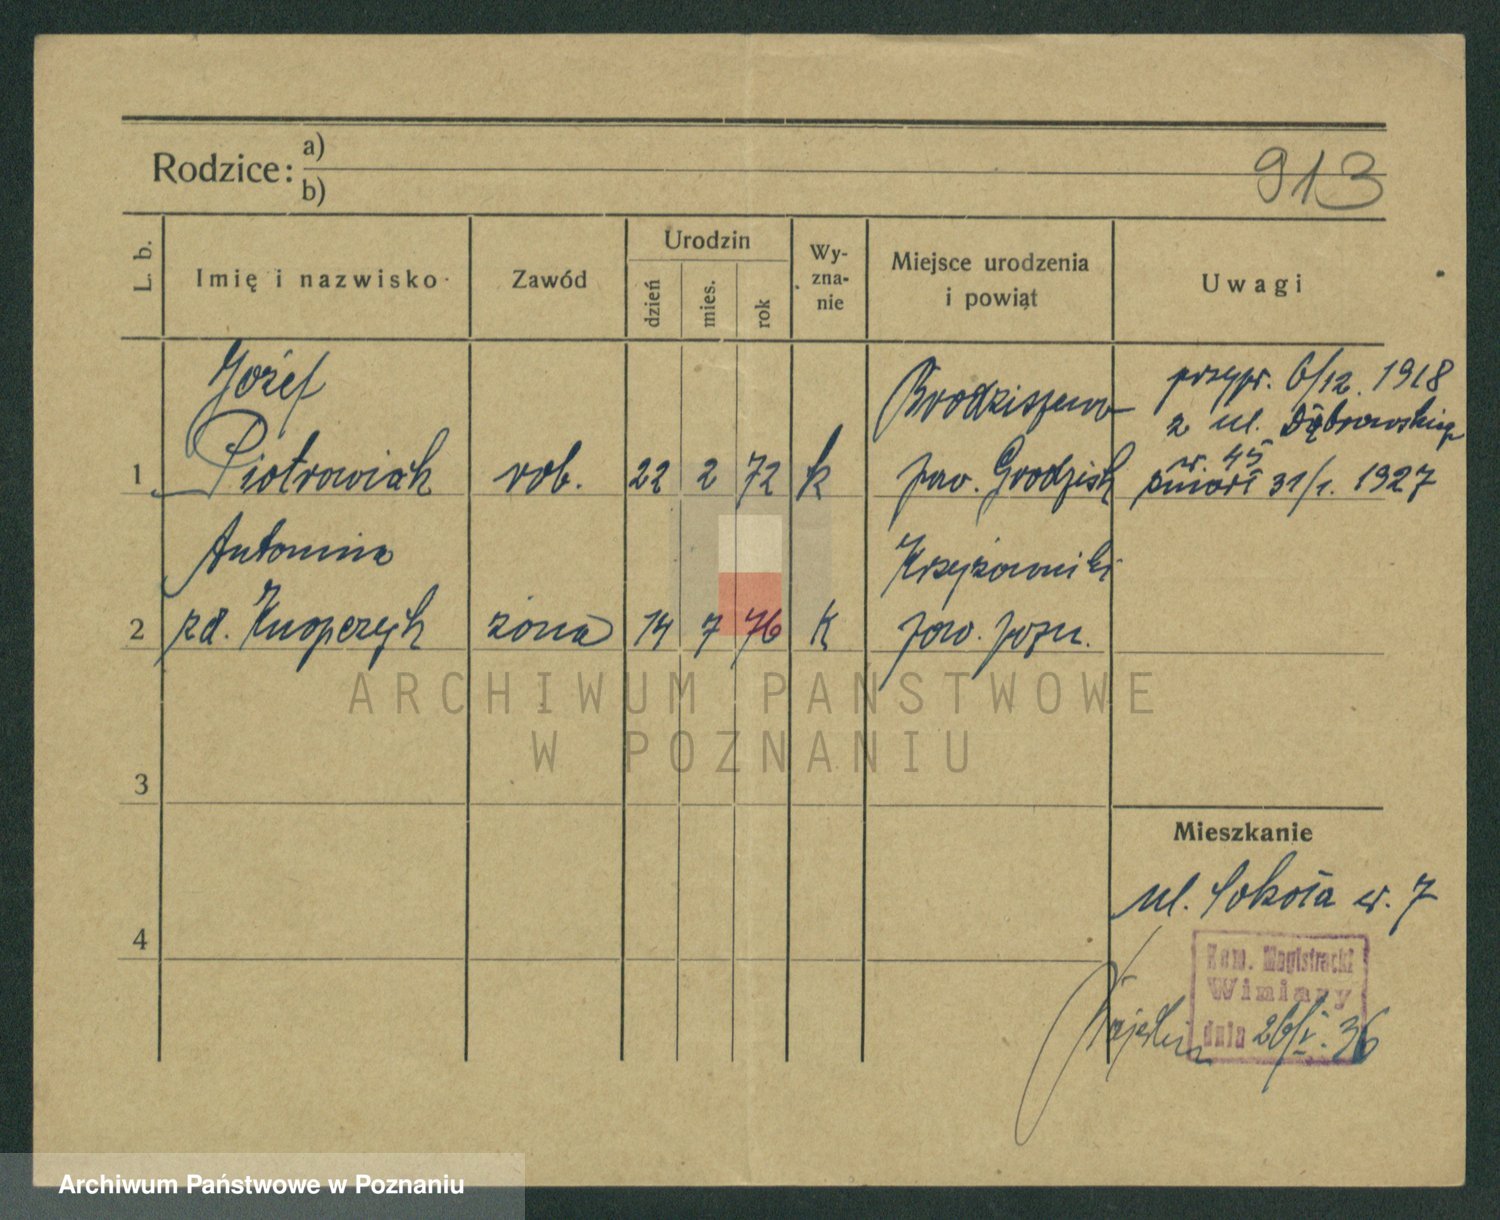 Rodzice: a)
b)
913
L. b.
Imię i nazwisko
Zawód
Urodzin
dzień
mies.
rok
Wy-
zna-
nie
Miejsce urodzenia
i powiąt
Uwagi
1
Józef
Piotrowiak
rob.
22
2
72
k
Brodziszewo
pow. Grodzisk
przypr. 6/12. 1918
z ul. Dąbrowskiego
nr. 45
zmarł 31/1. 1927
2
Antonina
zd. Knopczyk
żona
14
7
76
k
Krzyżowniki
pow. pozn.
ARCHIWUM PAŃSTWOWE
W POZNANIU
3
4
Mieszkanie
ul. Sokoła nr. 7
Kom. Magistracki
Winiary
dnia 26/V. 36
Archiwum Państwowe w Poznaniu